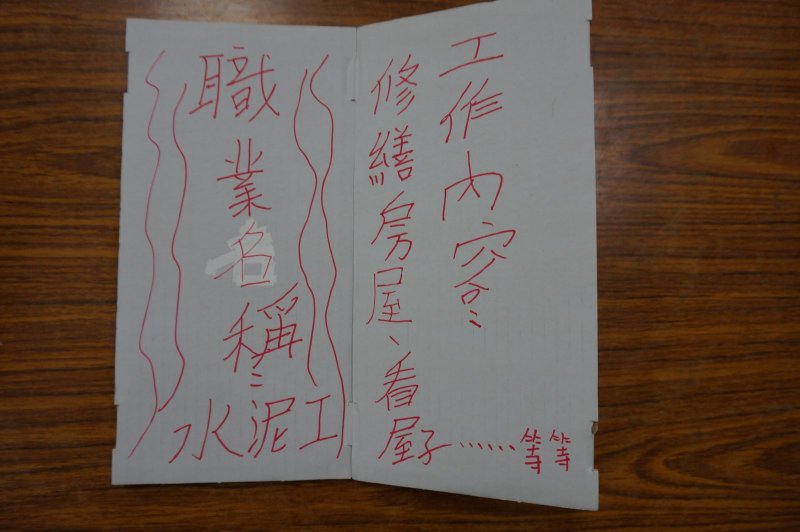 工作內容:
修繕房屋、看屋子……等等
職業名稱:
水泥工